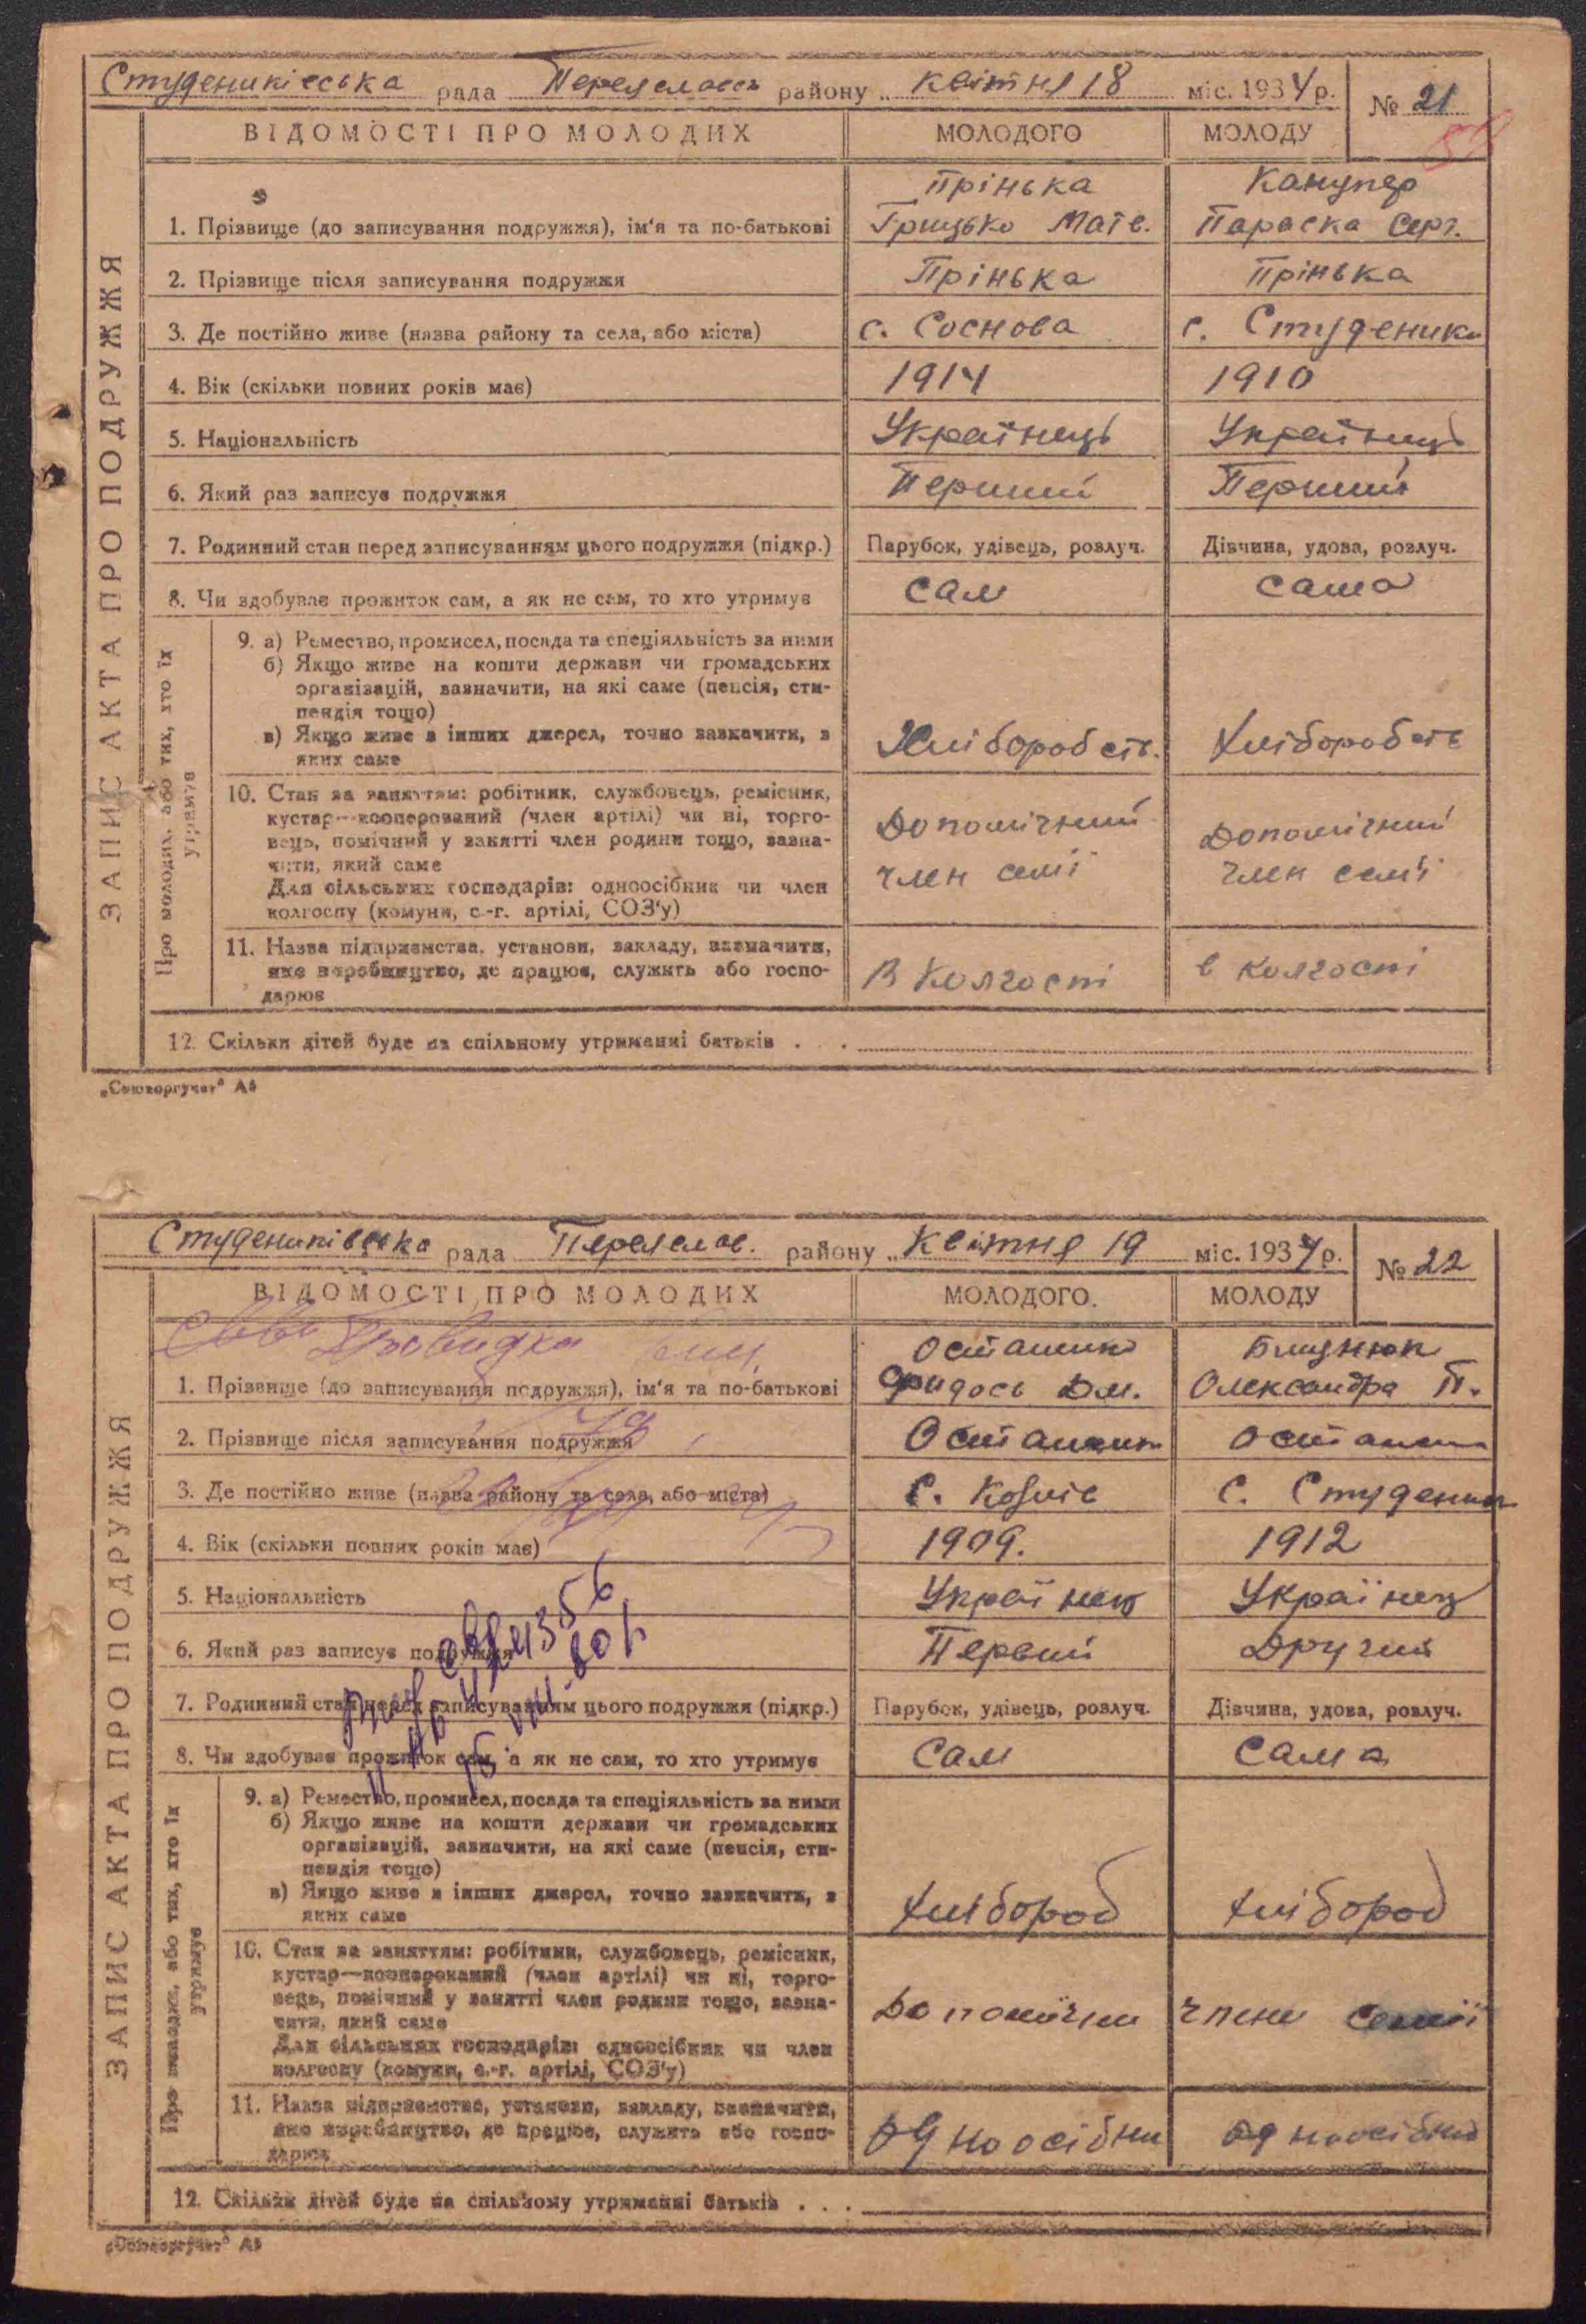 Студениківська рада Переяславсь району „ квітня 18 міс. 1934 р. № 21
ВІДОМОСТІ ПРО МОЛОДИХ МОЛОДОГО МОЛОДУ
ЗАПИС АКТА ПРО ПОДРУЖЖЯ
Прінька Канупер
1. Прізвище (до записування подружжя), ім'я та по-батькові Грицько Матв. Параска Серг.
2. Прізвище після записування подружжя Прінька Прінька
3. Де постійно живе (назва району та села, або міста) с. Соснова с. Студеники
4. Вік (скільки повних років має) 1914 1910
5. Національність Українець Українець
6. Який раз записує подружжя Перший Перший
7. Родинний стан перед записуванням цього подружжя (підкр.) Парубок, удівець, розлуч. Дівчина, удова, розлуч.
8. Чи здобуває прожиток сам, а як не сам, то хто утримує сам сама
Про молодих, або тих, хто їх утримує
9. а) Ремество, промисел, посада та спеціяльність за ними
б) Якщо живе на кошти держави чи громадських
організацій, зазначити, на які саме (пенсія, сти-
пендія тощо)
в) Якщо живе з інших джерел, точно зазначити, з Хлібороб ств. Хлібороб ств
яких саме
10. Стан за заняттям: робітник, службовець, ремісник,
кустар—кооперований (член артілі) чи ні, торго- Допомічний Допомічний
вець, помічний у занятті член родини тощо, зазна-
чити, який саме член семї член семї
Для сільських господарів: одноосібник чи член
колгоспу (комуни, с.-г. артілі, СОЗ'у)
11. Назва підприємства, установи, закладу, зазначити,
яке виробництво, де працює, служить або госпо- В Колгоспі в колгоспі
дарює
12. Скільки дітей буде на спільному утриманні батьків . . .
„Союзоргучет" А5
Студениківська рада Переяслав. району „ Квітня 19 міс. 1934 р. № 22
ВІДОМОСТІ ПРО МОЛОДИХ МОЛОДОГО. МОЛОДУ
ЗАПИС АКТА ПРО ПОДРУЖЖЯ
Осташенко
1. Прізвище (до записування подружжя), ім'я та по-батькові Дм. Олександра П.
2. Прізвище після записування подружжя
3. Де постійно живе (назва району та села, або міста) С. С. Студеники
4. Вік (скільки повних років має) 1909. 1912
5. Національність Українец Українец
6. Який раз записує подружжя Первий Другий
7. Родинний стан перед записуванням цього подружжя (підкр.) Парубок, удівець, розлуч. Дівчина, удова, розлуч.
8. Чи здобуває прожиток сам, а як не сам, то хто утримує Сам Сама
Про молодих, або тих, хто їх утримує
9. а) Ремество, промисел, посада та спеціяльність за ними
б) Якщо живе на кошти держави чи громадських
організацій, зазначити, на які саме (пенсія, сти-
пендія тощо)
в) Якщо живе з інших джерел, точно зазначити, з Хлібороб Хлібороб
яких саме
10. Стан за заняттям: робітник, службовець, ремісник,
кустар—кооперований (член артілі) чи ні, торго-
вець, помічний у занятті член родини тощо, зазна- Допомічни члени семїї
чити, який саме
Для сільських господарів: одноосібник чи член
колгоспу (комуни, с.-г. артілі, СОЗ'у)
11. Назва підприємства, установи, закладу, зазначити,
яке виробництво, де працює, служить або госпо- одноосібни одноосібни
дарює
12. Скільки дітей буде на спільному утриманні батьків . . .
„Союзоргучет" А5